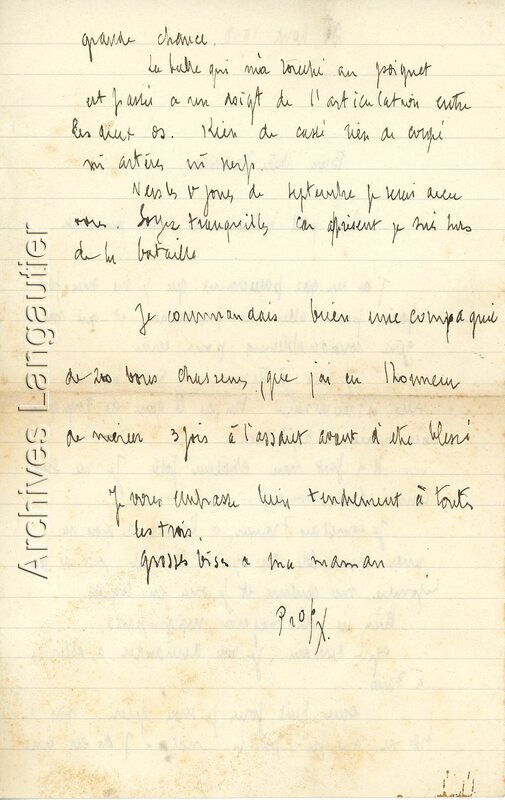 grande chance.
La balle qui m'a touché au poignet
est passée a un doigt de l'articulation entre
les deux os. Rien de cassé rien de coupé
ni artères ni nerfs.
Vers les 1 jours de septembre je serai avec
vous. Soyez tranquilles car apresent je suis hors
de la bataille
Je commandais bien une compagnie
de 200 bons chasseurs, que j'ai eu l'honneur
de mener 3 fois à l'assaut avant d'être blessé
Je vous embrasse bien tendrement à toutes
les trois.
Grosses bises a ma maman
Archives Langautier